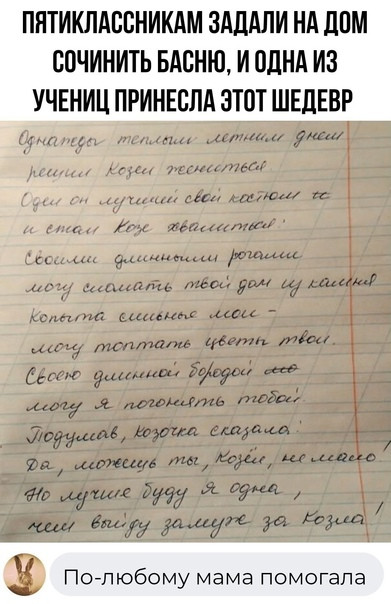 ПЯТИКЛАССНИКАМ ЗАДАЛИ НА ДОМ
СОЧИНИТЬ БАСНЮ, И ОДНА ИЗ
УЧЕНИЦ ПРИНЕСЛА ЭТОТ ШЕДЕВР
Однажды теплым летним днем
решил Козел жениться
Одел он лучший свой костюм
и стал Козе хвалиться:
Своими длинными рогами
могу сломать твой дом из камня
Копыта сильные мои -
могу топтать цветы твои.
Своею длинной бородой
могу я погонять тобой.
Подумав, козочка сказала:
Да, можешь ты, Козёл, не мало!
Но лучше буду я одна,
чем выйду замуж за Козла!
По-любому мама помогала